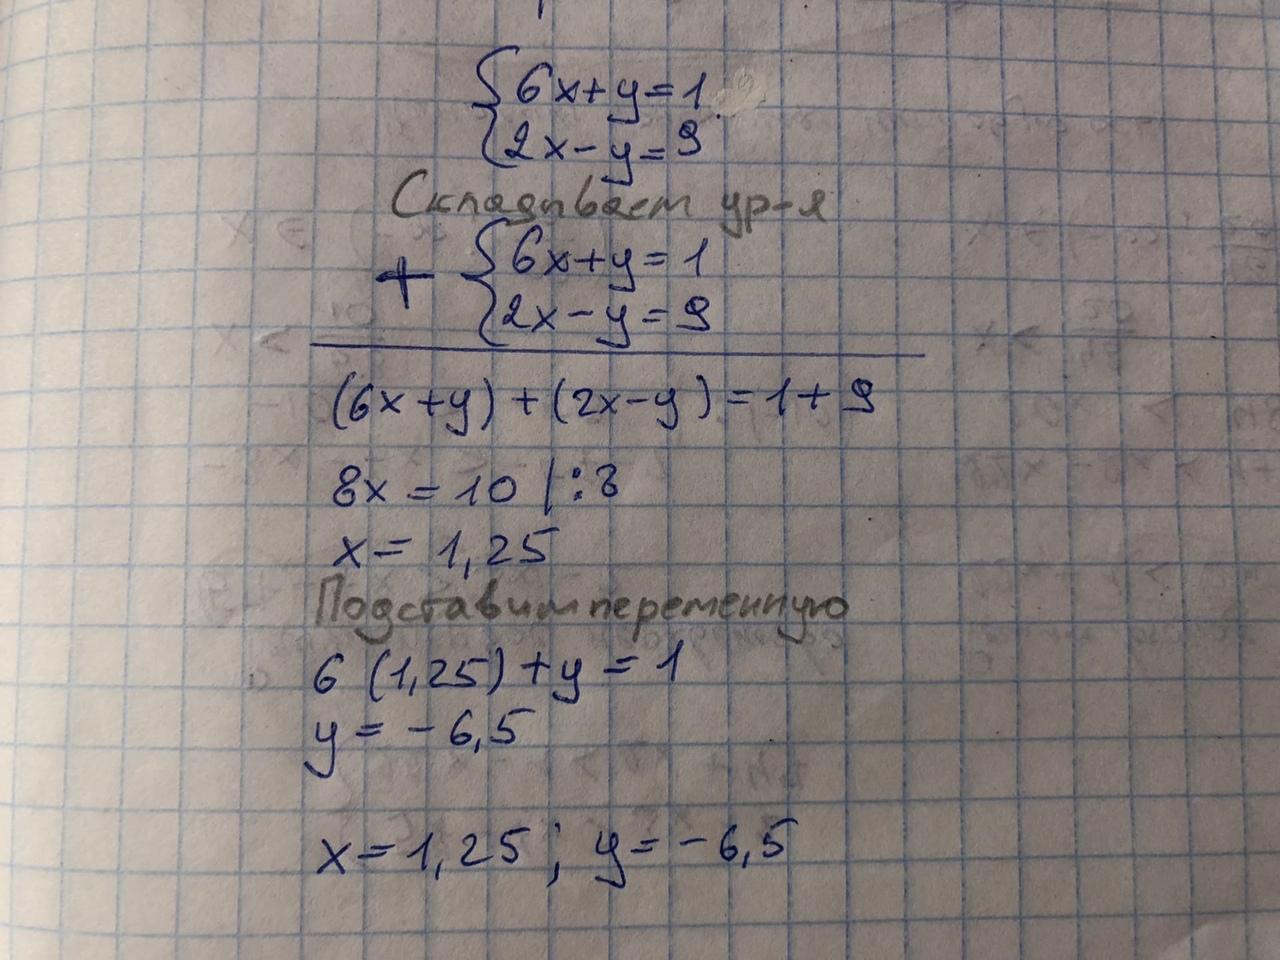 6x+y=1
2x-y=9
Складываем ур-я
+ 6x+y=1
2x-y=9
(6x+y)+(2x-y)=1+9
8x=10 |:8
x=1,25
Подставим переменную
6(1,25)+y=1
y=-6,5
x=1,25; y=-6,5